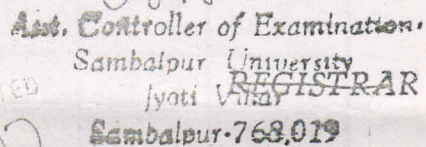 Asst. Controller of Examination.
Sambalpur University
REGISTRAR
Jyoti Vihar
Sambalpur-768,019